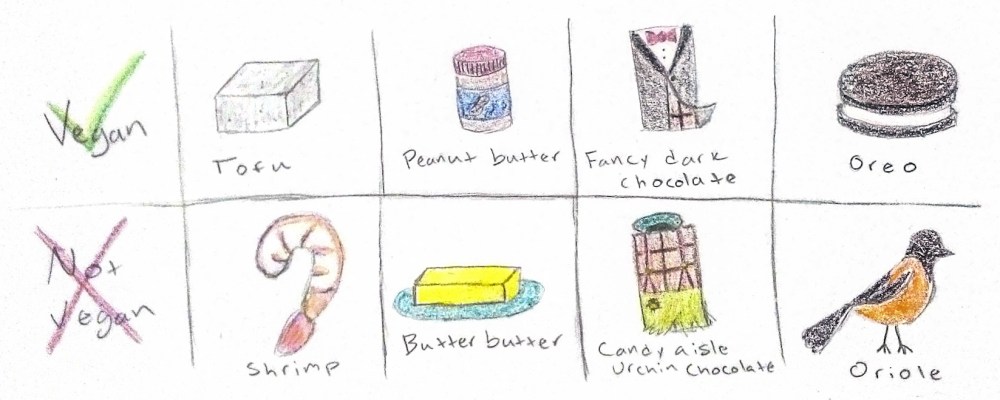 Vegan
Tofu
Peanut butter
Fancy dark
chocolate
Oreo
Not
Vegan
Shrimp
Butter butter
Candy aisle
Urchin chocolate
Oriole